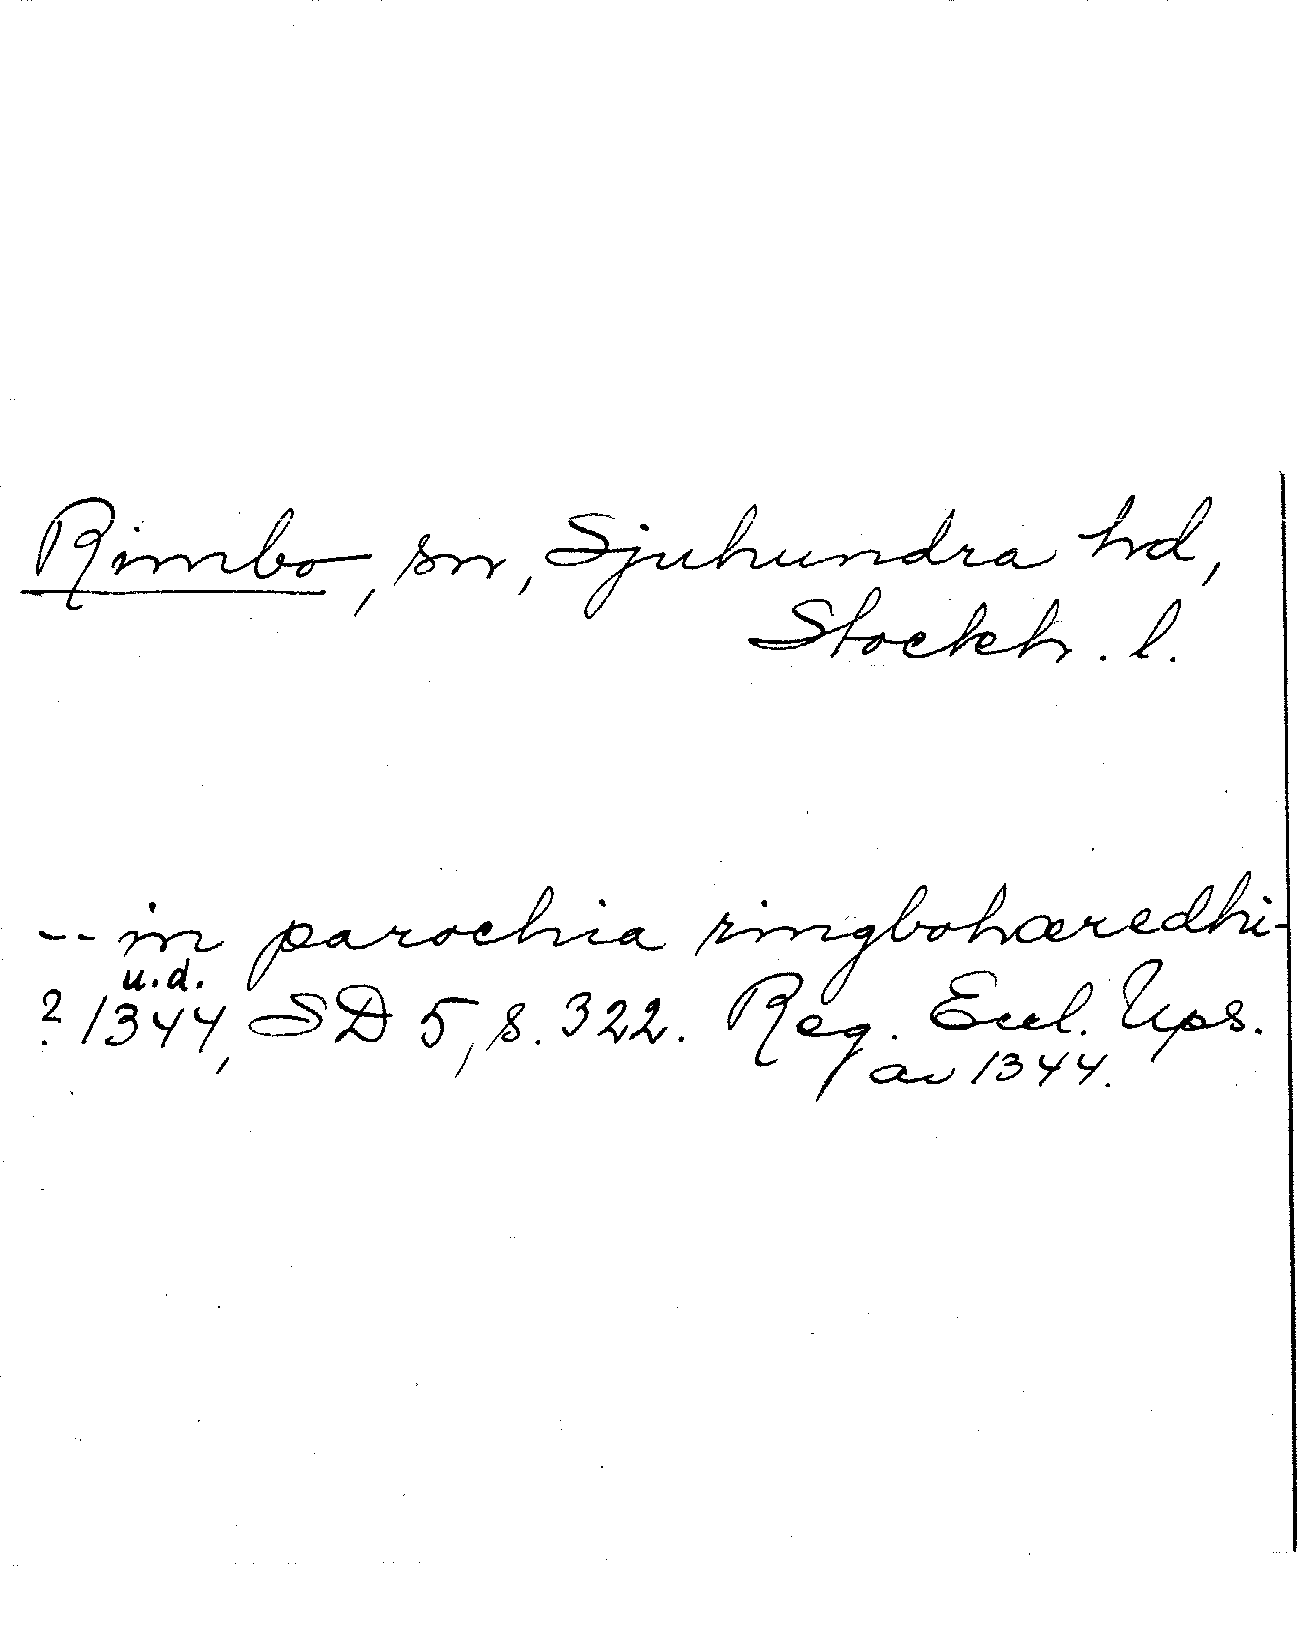 Rimbo, sn, Sjuhundra hd,
Stockh. l.
-- in parochia ringbohæredhi-
u.d.
? 1344, SD 5, s. 322. Reg. Eccl. Ups.
av 1344.